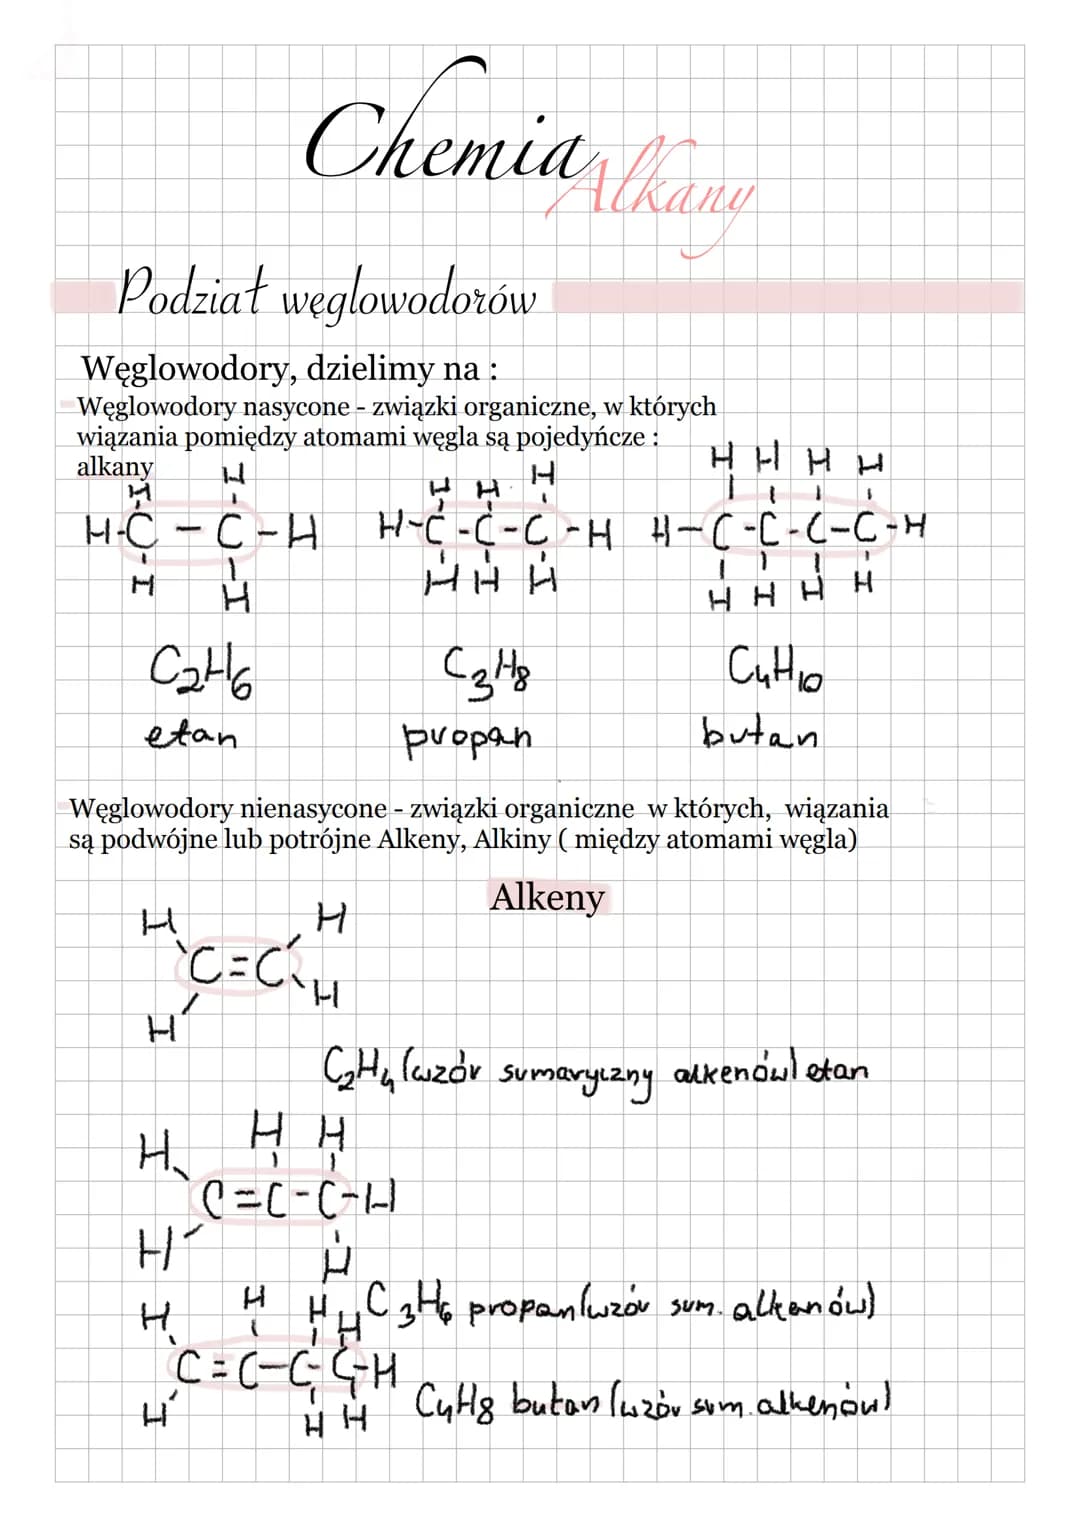 Chemia
Alkany
Podział węglowodorów
Węglowodory, dzielimy na :
-Węglowodory nasycone - związki organiczne, w których
wiązania pomiędzy atomami węgla są pojedyńcze :
alkany
H H H H H H H H H
H-C - C-H H-C-C-C-H H-C-C-C-C-H
H H H H H H H H H
C2H6 C3H8 C4H10
etan propan butan
-Węglowodory nienasycone - związki organiczne w których, wiązania
są podwójne lub potrójne Alkeny, Alkiny ( między atomami węgla)
Alkeny
H H
C=C
H H
C2H4 (wzór sumaryczny alkenów) etan
H H H
C=C-C-H
H H
C3H6 propan (wzór sum. alkenów)
H H H H
C=C-C-C-H
H H H
C4H8 butan (wzór sum. alkenów)